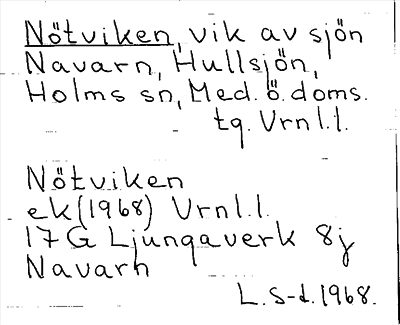 Nötviken, vik av sjön
Navarn, Hullsjön,
Holms sn, Med. ö. doms.
tg. Vrnl.l.
Nötviken
ek (1968) Vrnl.l.
17 G Ljungaverk 8j
Navarn
L. S-d. 1968.